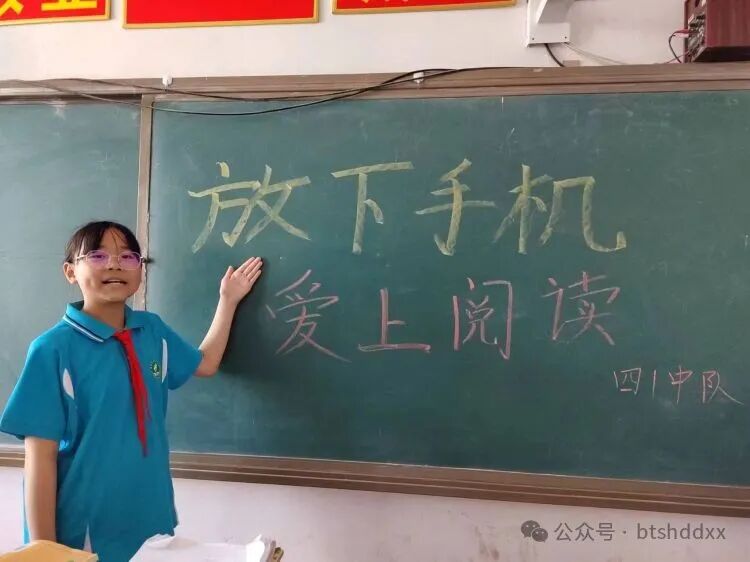 放下手机
爱上阅读
四1中队
公众号 · btshddxx